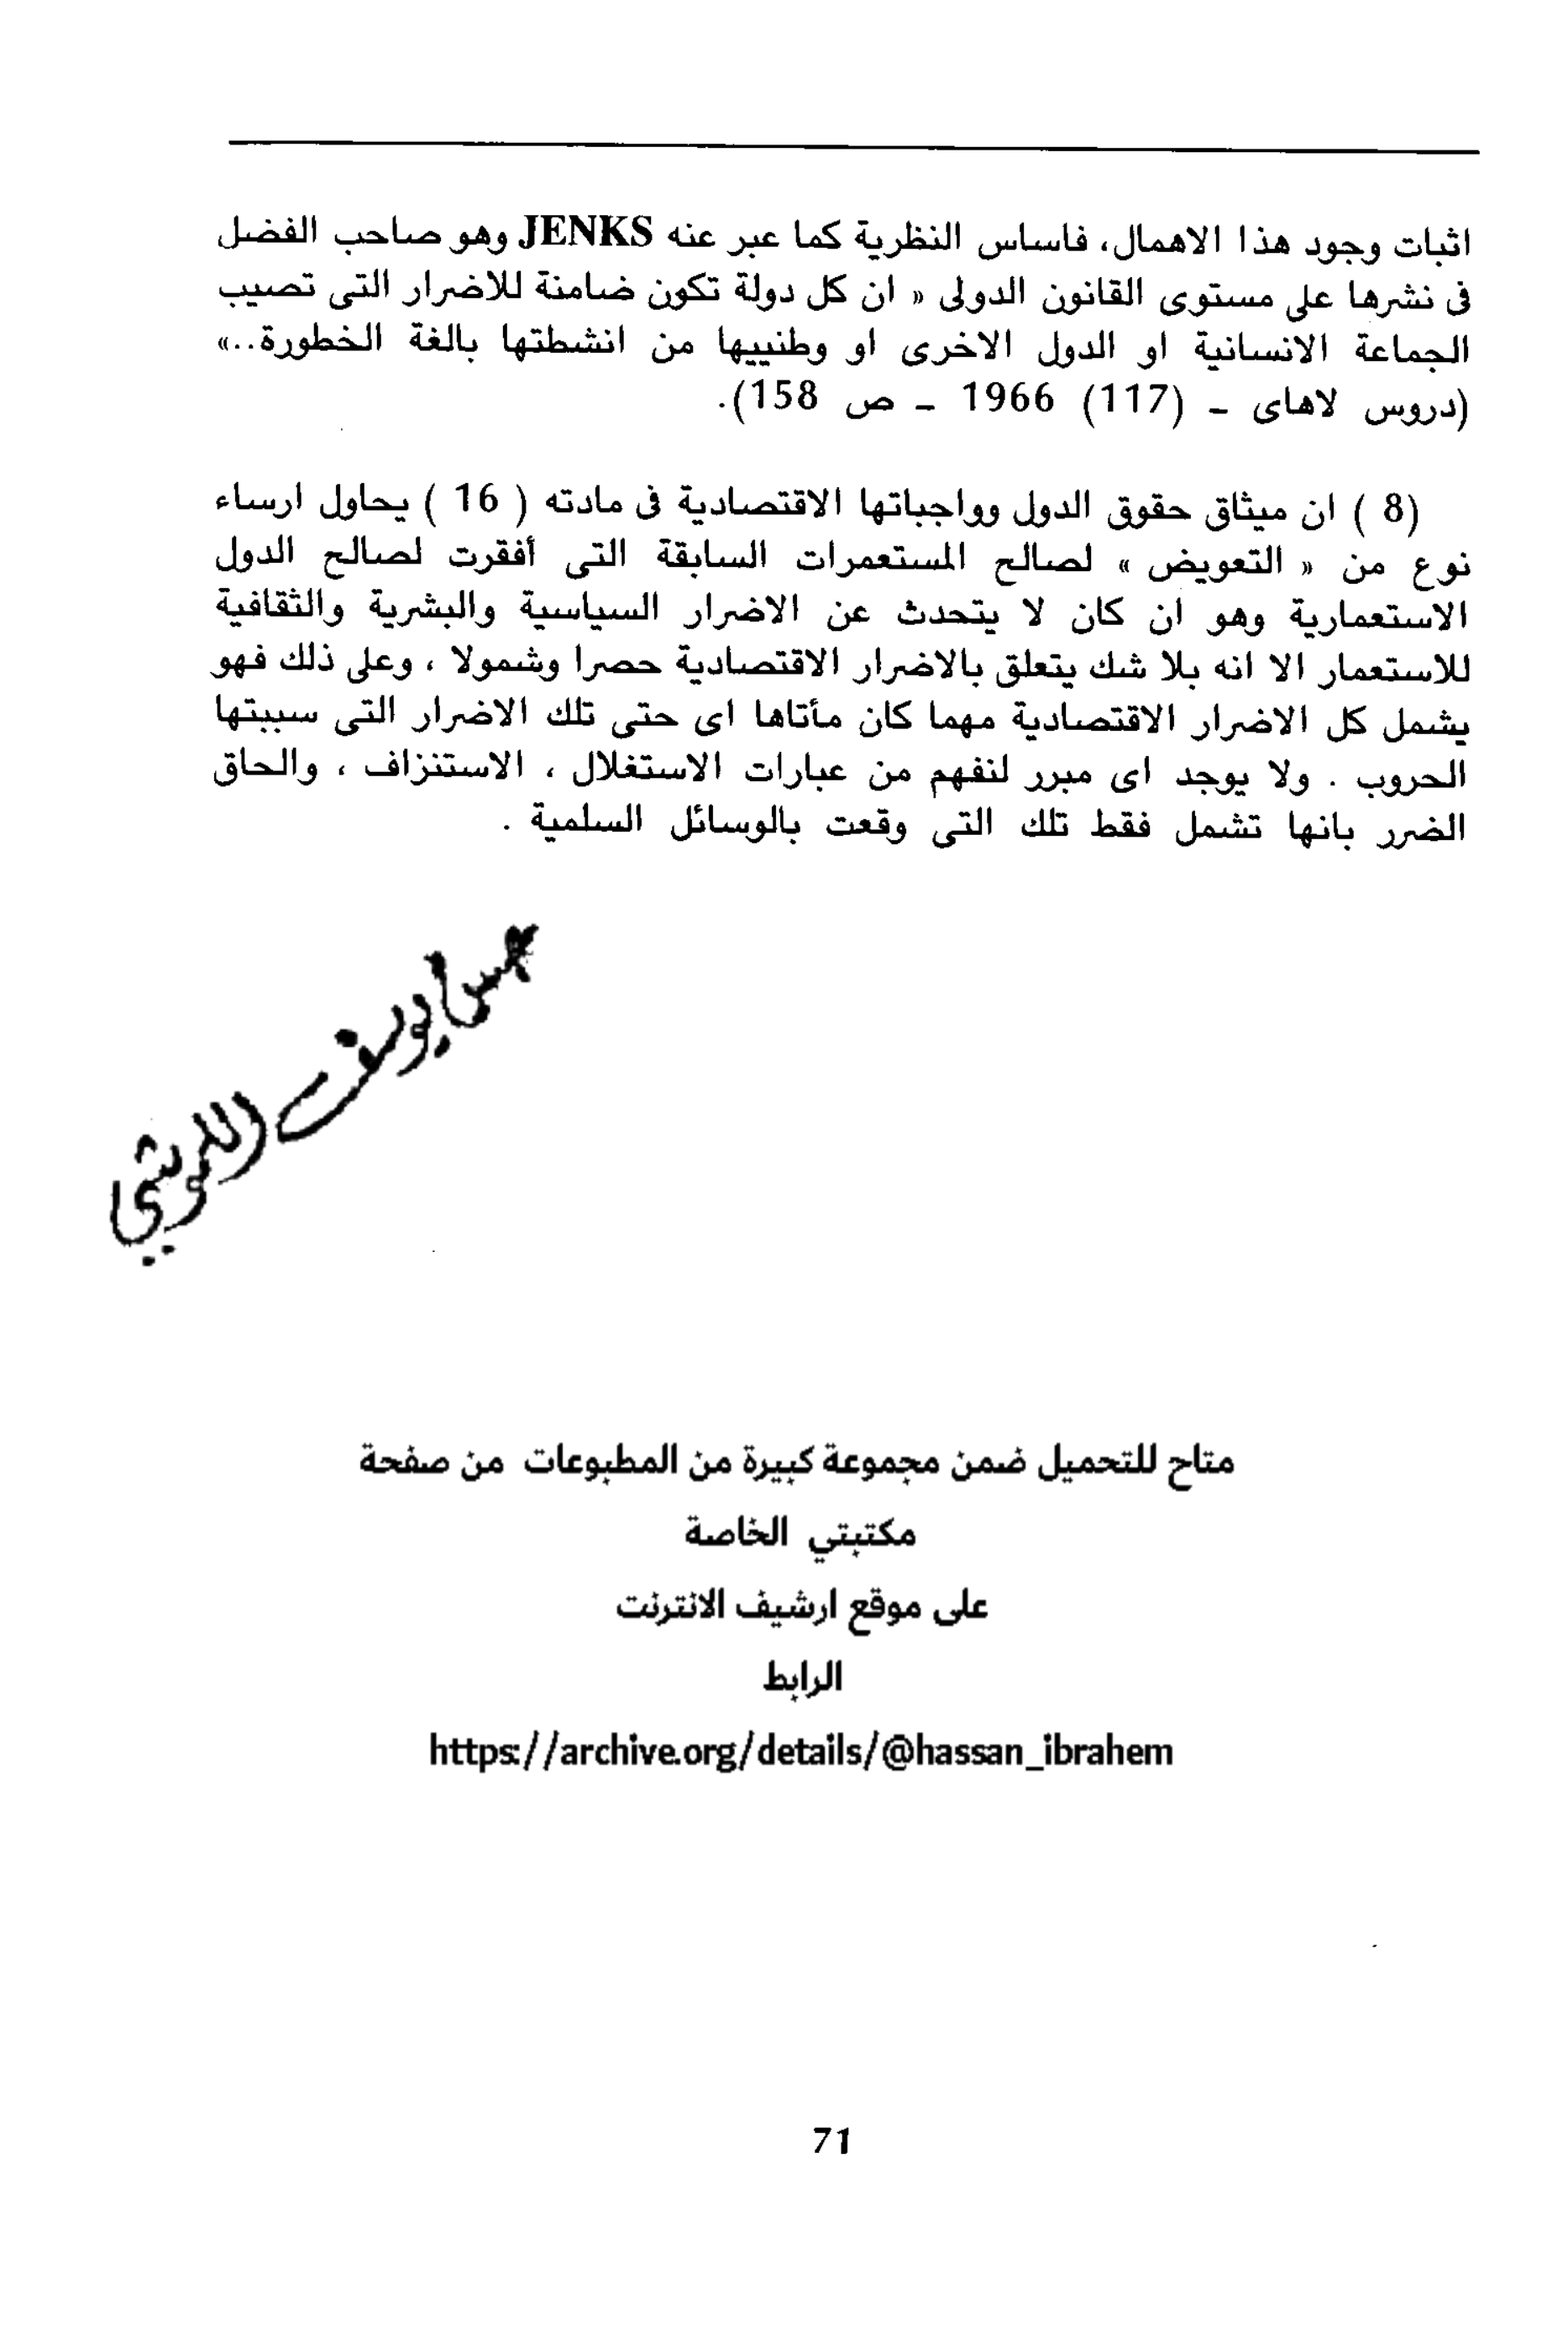 اثبات وجود هذا الاهمال، فاساس النظرية كما عبر عنه JENKS وهو صاحب الفضل
فى نشرها على مستوى القانون الدولى « ان كل دولة تكون ضامنة للاضرار التى تصيب
الجماعة الانسانية او الدول الاخرى او وطنييها من انشطتها بالغة الخطورة..»
(دروس لاهاى ـ (117) 1966 ـ ص 158).
(8 ) ان ميثاق حقوق الدول وواجباتها الاقتصادية فى مادته ( 16 ) يحاول ارساء
نوع من « التعويض » لصالح المستعمرات السابقة التى أفقرت لصالح الدول
الاستعمارية وهو ان كان لا يتحدث عن الاضرار السياسية والبشرية والثقافية
للاستعمار الا انه بلا شك يتعلق بالاضرار الاقتصادية حصرا وشمولا ، وعلى ذلك فهو
يشمل كل الاضرار الاقتصادية مهما كان مأتاها اى حتى تلك الاضرار التى سببتها
الحروب . ولا يوجد اى مبرر لنفهم من عبارات الاستغلال ، الاستنزاف ، والحاق
الضرر بانها تشمل فقط تلك التى وقعت بالوسائل السلمية .
يوسف
متاح للتحميل ضمن مجموعة كبيرة من المطبوعات من صفحة
مكتبتي الخاصة
على موقع ارشيف الانترنت
الرابط
https://archive.org/details/@hassan_ibrahem
71